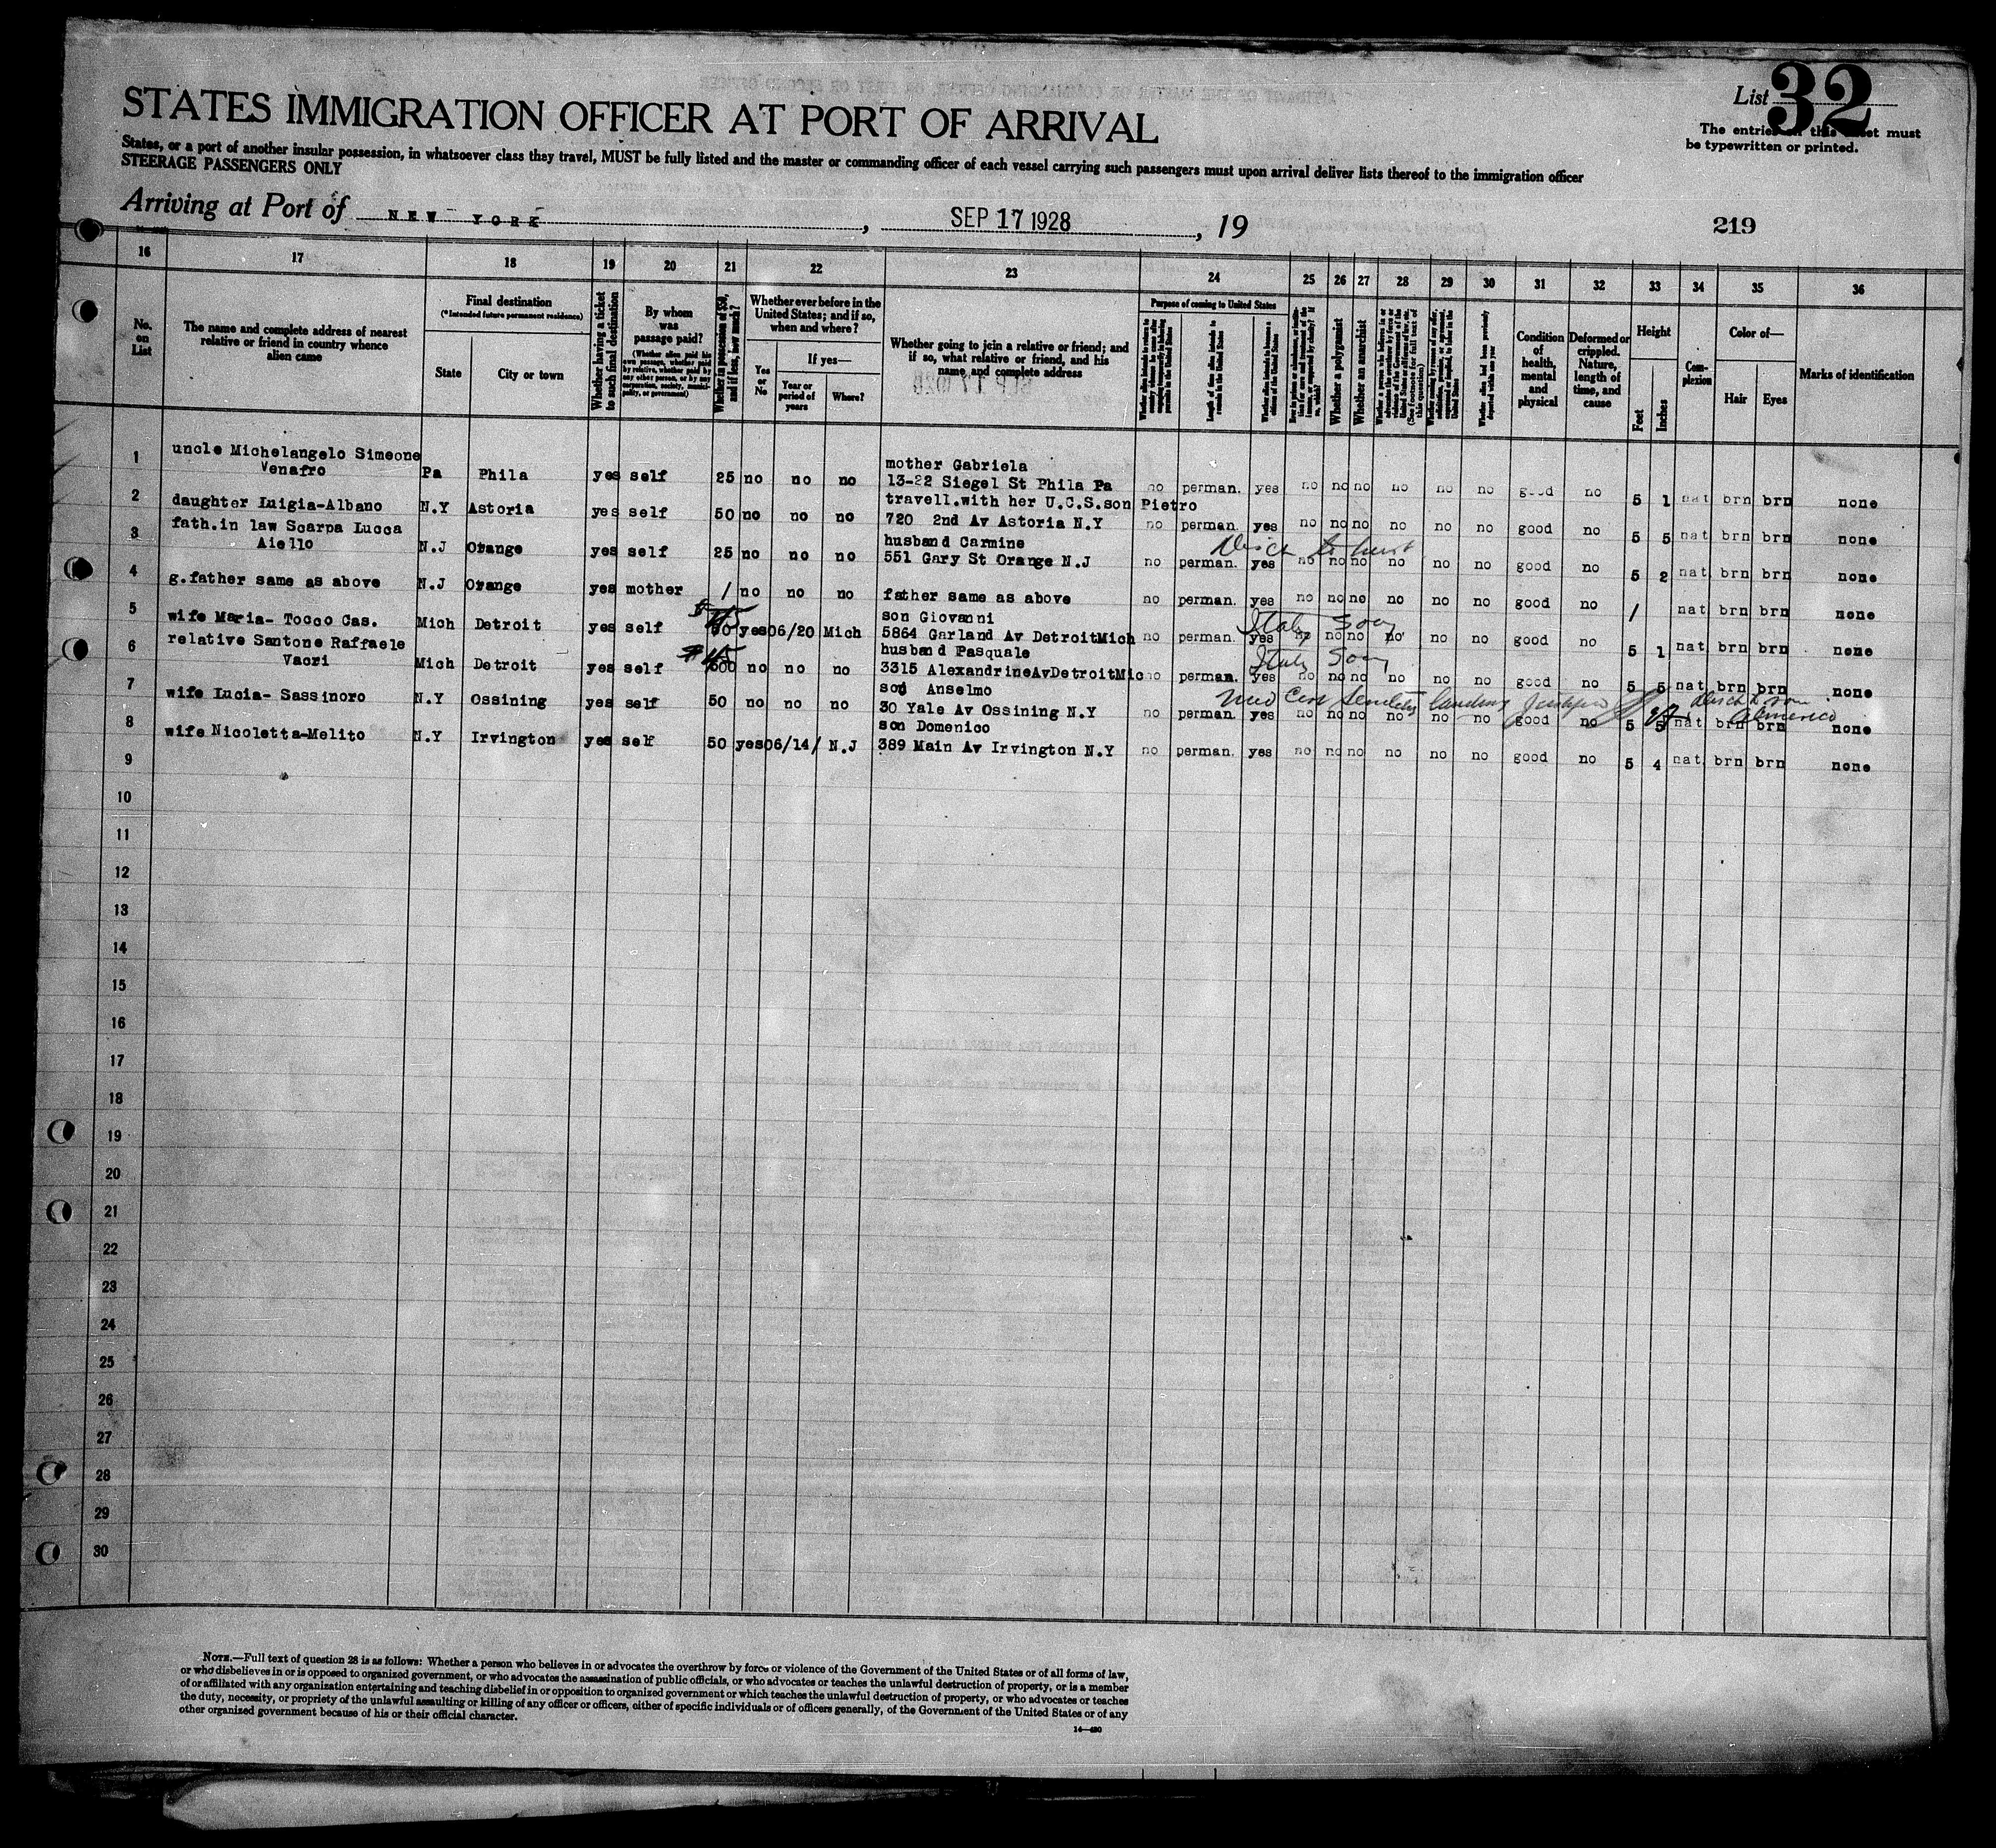 List 32
STATES IMMIGRATION OFFICER AT PORT OF ARRIVAL
The entries on this sheet must
be typewritten or printed.
States, or a port of another insular possession, in whatsoever class they travel, MUST be fully listed and the master or commanding officer of each vessel carrying such passengers must upon arrival deliver lists thereof to the immigration officer
STEERAGE PASSENGERS ONLY
Arriving at Port of NEW YORK, SEP 17 1928, 19
219
16 17 18 19 20 21 22 23 24 25 26 27 28 29 30 31 32 33 34 35 36
No. on List
The name and complete address of nearest relative or friend in country whence alien came
Final destination
(*Intended future permanent residence)
State
City or town
Whether having a ticket to such final destination
By whom was passage paid?
(Whether alien paid his own passage, whether paid by relative, whether paid by any other person, or by any corporation, society, municipality, or government)
Whether in possession of $50, and if less, how much?
Whether ever before in the United States; and if so, when and where?
Yes or No
If yes—
Year or period of years
Where?
Whether going to join a relative or friend; and if so, what relative or friend, and his name and complete address
Purpose of coming to United States
Length of time alien intends to remain in the United States
Whether alien intends to become a citizen of the United States
Whether a polygamist
Whether an anarchist
Condition of health, mental and physical
Deformed or crippled. Nature, length of time, and cause
Height
Feet
Inches
Complexion
Color of—
Hair
Eyes
Marks of identification
1 uncle Michelangelo Simeone
Venafro Pa Phila yes self 25 no no no mother Gabriela
13-22 Siegel St Phila Pa no perman. yes no no no no no no good no 5 1 nat brn brn none
2 daughter Luigia-Albano N.Y Astoria yes self 50 no no no travell.with her U.C.S.son Pietro
720 2nd Av Astoria N.Y no perman. yes no no no no no no good no 5 5 nat brn brn none
3 fath.in law Scarpa Lucca
Aiello N.J Orange yes self 25 no no no husband Carmine
551 Gary St Orange N.J no perman. yes no no no no no no good no 5 2 nat brn brn none
4 g.father same as above N.J Orange yes mother / no no no father same as above no perman. yes no no no no no no good no / nat brn brn none
5 wife Maria- Tocco Cas. Mich Detroit yes self yes 06/20 Mich son Giovanni
5864 Garland Av DetroitMich no perman. yes no no no no no no good no 5 1 nat brn brn none
6 relative Santone Raffaele
Vacri Mich Detroit yes self no no no husband Pasquale
3315 AlexandrineAvDetroitMic no perman. yes no no no no no no good no 5 5 nat brn brn none
7 wife Lucia- Sassinoro N.Y Ossining yes self 50 no no no son Anselmo
30 Yale Av Ossining N.Y no perman. yes no no no no no no good no 5 5 nat brn brn none
8 wife Nicoletta-Melito N.Y Irvington yes self 50 yes 06/14/ N.J son Domenico
389 Main Av Irvington N.Y no perman. yes no no no no no no good no 5 4 nat brn brn none
9
10
11
12
13
14
15
16
17
18
19
20
21
22
23
24
25
26
27
28
29
30
NOTE.—Full text of question 28 is as follows: Whether a person who believes in or advocates the overthrow by force or violence of the Government of the United States or of all forms of law,
or who disbelieves in or is opposed to organized government, or who advocates the assassination of public officials, or who advocates or teaches the unlawful destruction of property, or is a member
of or affiliated with any organization entertaining and teaching disbelief in or opposition to organized government or which teaches the unlawful destruction of property, or who advocates or teaches
the duty, necessity, or propriety of the unlawful assaulting or killing of any officer or officers, either of specific individuals or of officers generally, of the Government of the United States or of any
other organized government because of his or their official character.
14—480